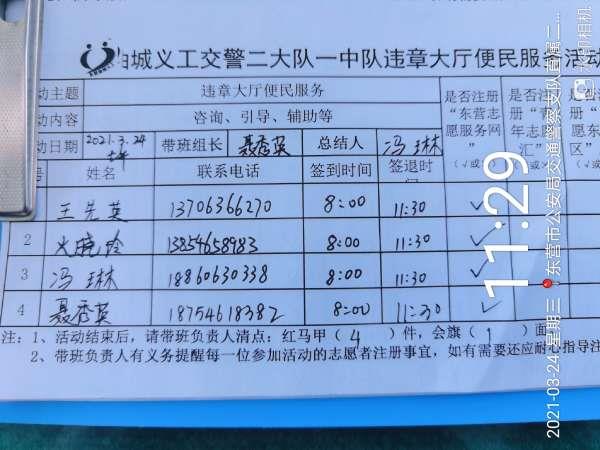 油城义工交警二大队一中队违章大厅便民服务活动
动主题 违章大厅便民服务 是否注册“东营志愿服务网”
动内容 咨询、引导、辅助等
动日期 2021.3.24 带班组长 聂香英 总结人 冯琳 (√或
姓名 联系电话 签到时间 签退时间
王先英 13706366270 8:00 11:30 √
2 火晓玲 13854658983 8:00 11:30 √
3 冯琳 18860630338 8:00 11:30 √
4 聂香英 18754618382 8:00 11:30 √
注:1、活动结束后,请带班负责人清点:红马甲(4)件,会旗(1)面
2、带班负责人有义务提醒每一位参加活动的志愿者注册事宜,如有需要还应耐心指导注
11:29
2021-03-24 星期三 东营市公安局交通警察支队直属二...
水印相机